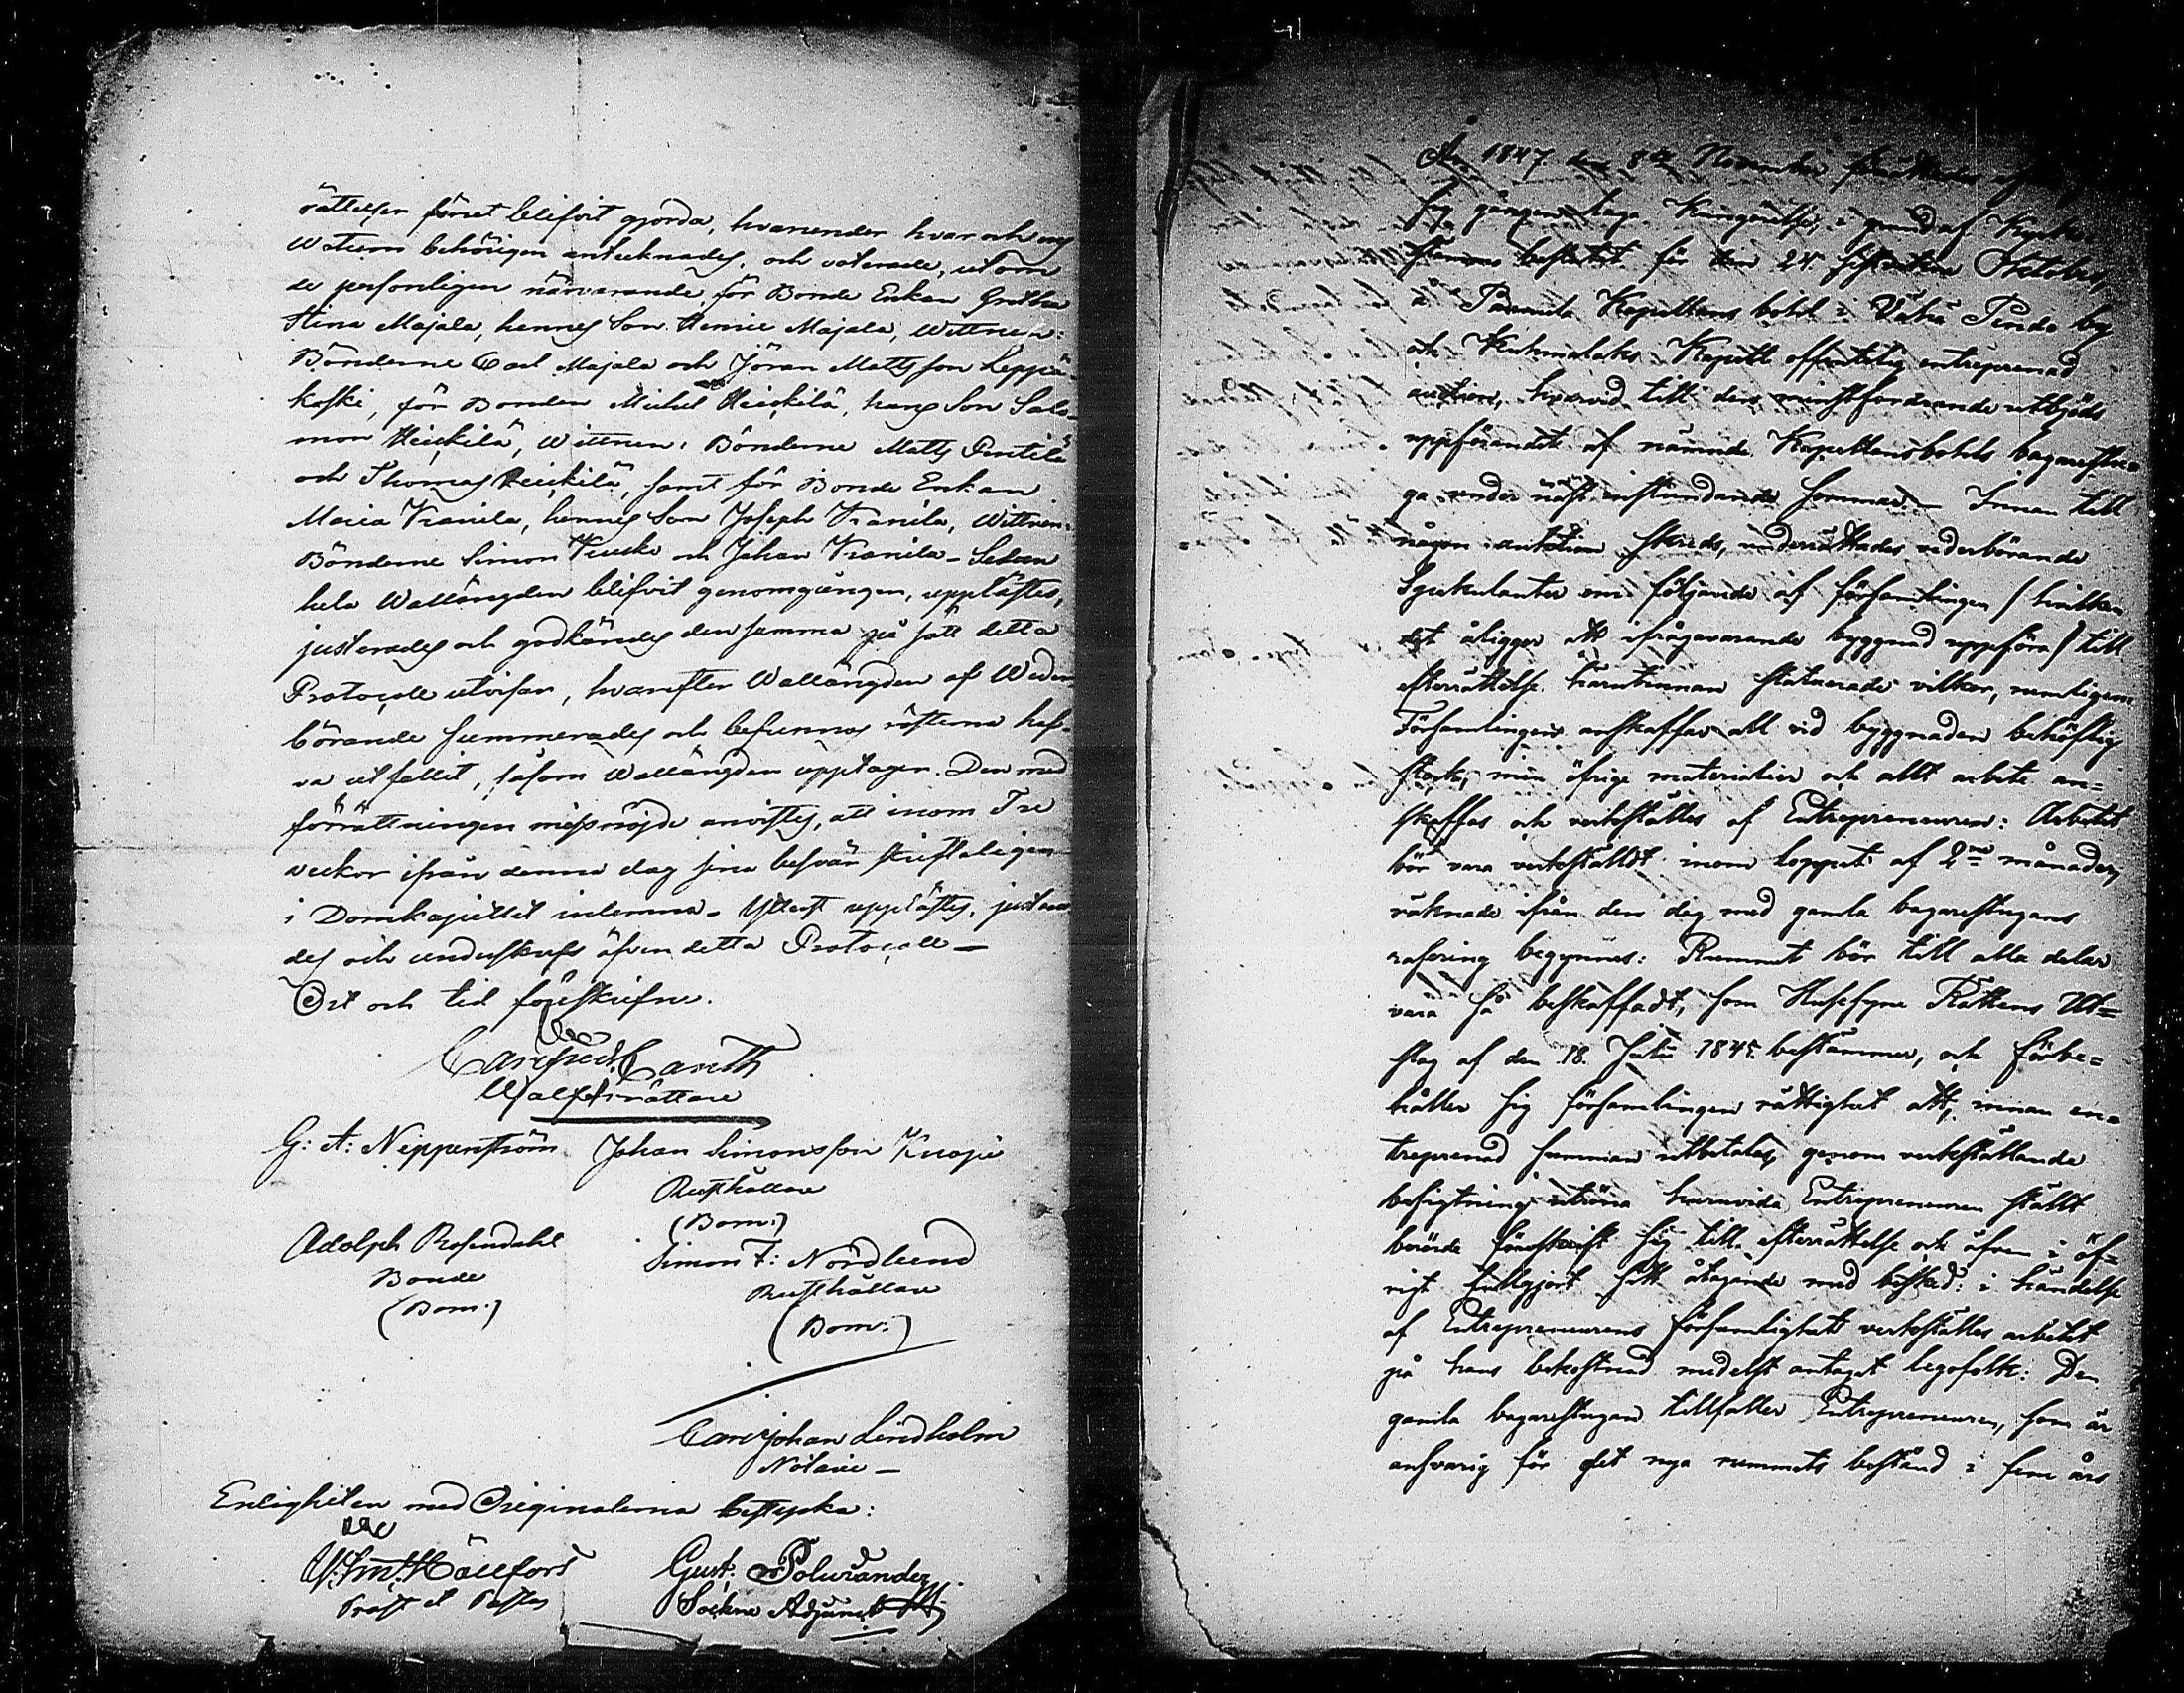 rättelser först blifvit gjorda, hvarunder hvar och ens
Wotum behörigen antecknades, och voterade, utom
de personligen närvarande, för Bonde Enkan Gretha
Stina Majala, hennes Son Henric Majala, Wittnen:
Bönderne Carl Majala och Jöran Mattsson Leppä-
koski, för Bonden Michel Heickilä, hans Son Salo-
mon Heickilä, Wittnen: Bönderne Matts Pentilä
och Thomas Heickilä, samt för Bonde Enkan
Maria Kranila, hennes Son Joseph Kranila, Wittnen:
Bönderne Simon och Johan Kranila – Sedan
hela Wallängden blifvit genomgången, upplästes,
justerades och godkändes densamma på sätt detta
Protocoll utvisar, hvarefter Wallängden af Weder-
börande summerades och befunnos rösterna haf-
va utfallit, såsom Wallängden upptager. Den med
förrättningen missnöjde anvistes, att inom Tre
veckor ifrån denna dag sina besvär skriftligen
i Domkapitlet inlemna – Ytterst upplästes, justera-
des och underskrefs äfven detta Protocoll –
Ort och tid föreskrifne.
Walförrättare
G: A: Nepperström Johan Simonsson Knapi
Rusthållare
(Bom:)
Adolph Rosendahl Simon F: Nordlund
Bonde Rusthållare
(Bom:) (Bom:)
Carl Johan Lindholm
Notarie –
Enligheten med Originalerna bestyrka:
Hällfors Gust: Polviander
Prost et Pastor Sockne Adjunct
År 1847 den 8de November förrättades
gången laga Kungörelse, i grund af Kyrko-
stämmo beslutet för den 24 sistvikne Oktober,
å Kapellans bohl i Vähä Pendo by
och Kuhmalaks Kapell offentelig entreprenad
auction, hvarvid till den minstfordrande utbjöds
uppförandet af nämnde Kapellansbohls bagarestu-
ga under näst instundande sommar. – Innan till
någon auktion skreds, underrättades vederbörande
Spekulanter om följande af församlingen / hvilken
det åligger att ifrågavarande byggnad uppföra / till
efterrättelse härutinnan statuerade vilkor, nemligen
Församlingen anskaffar all vid byggnaden behöflig
stock, men öfrige materialier och allt arbete an-
skaffas och verkställes af Entrepreneuren: Arbetet
bör vara verkställdt inom loppet af 2ne månader,
räknade ifrån den dag med gamla bagarestugans
rasering begynnes: Rummet bör till alla delar
vara så beskaffadt, som Husesyns Rättens Ut-
slag af den 18 Juli 1845 bestämmer, och förbe-
håller sig församlingen rättighet att, innan en-
treprenad summan utbetales, genom verkställande
besigtning utröna huruvida Entrepreneuren ställt
berörde föreskrift sig till efterrättelse och äfven i öf-
rigt fullgjort sitt åtagande med besked: i händelse
af Entrepreneurens försumlighet verkställes arbetet
på hans bekostnad medelst antaget legofolk: Den
gamla bagarestugan tillfaller Entrepreneuren, som är
ansvarig för det nya rummets bestånd i fem års